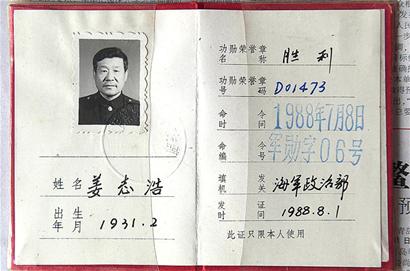 姓名 姜志浩
出生年月 1931.2
功勋荣誉章名称 胜利
功勋荣誉章号码 D01473
命令时间 1988年7月8日
命令编号 军勋字06号
填发机关 海军政治部
发证时间 1988.8.1
此证只限本人使用